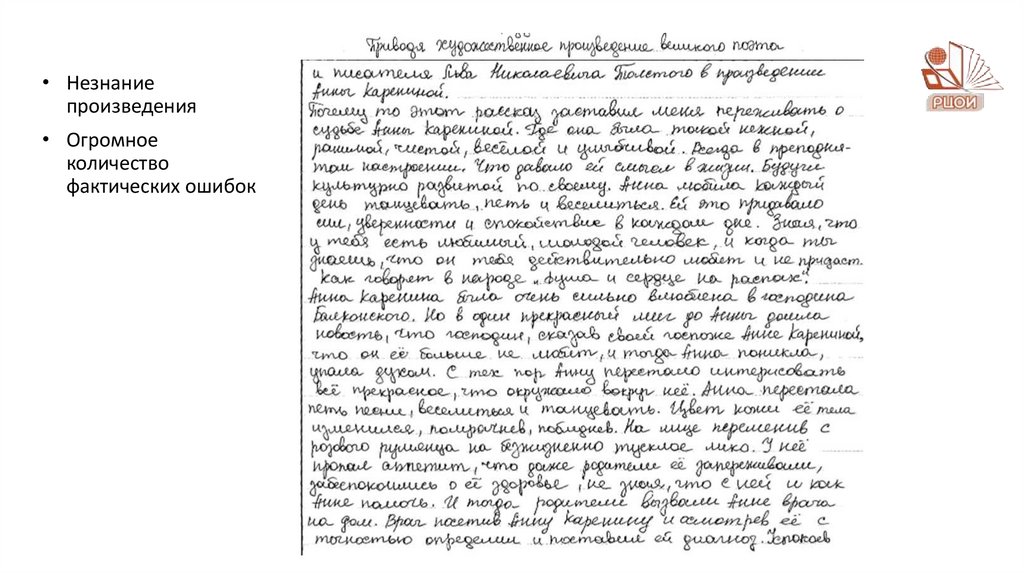 • Незнание
произведения
• Огромное
количество
фактических ошибок
Приводя художественное произведение великого поэта
и писателя Льва Николаевича Толстого в произведении
Анны Карениной.
Почему то этот рассказ заставил меня переживать о
судьбе Анны Карениной. Где она была такой нежной,
ранимой, чистой, весёлой и улыбчивой. Всегда в преподня-
том настроении. Что давало ей смысл в жизни. Будучи
культурно развитой по своему. Анна любила каждый
день танцевать, петь и веселиться. Ей это придавало
сил, уверенности и спокойствие в каждом дне. Зная, что
у тебя есть любимый, молодой человек, и когда ты
знаешь, что он тебя действительно любит и не придаст.
Как говорят в народе „душа и сердце на распах".
Анна Каренина была очень сильно влюблена в господина
Балконского. Но в один прекрасный миг до Анны дошла
новость, что господин, сказав своей госпоже Анне Карениной,
что он её больше не любит, и тогда Анна поникла,
упала духом. С тех пор Анну перестало интерисовать
всё прекрасное, что окружало вокруг неё. Анна перестала
петь песни, веселиться и танцевать. Цвет кожи её тела
изменился, помрачнев, побліднев. На лице переменив с
розового румянца на безжизненно тусклое лико. У неё
пропал аппетит, что даже родители её запереживали,
забеспокоились о её здоровье, не зная, что с ней и как
Анне помочь. И тогда родители вызвали Анне врача
на дом. Врач посетив Анну Каренину и осмотрев её с
точностью определил и поставил ей диагноз. Успокоев
РЦОИ